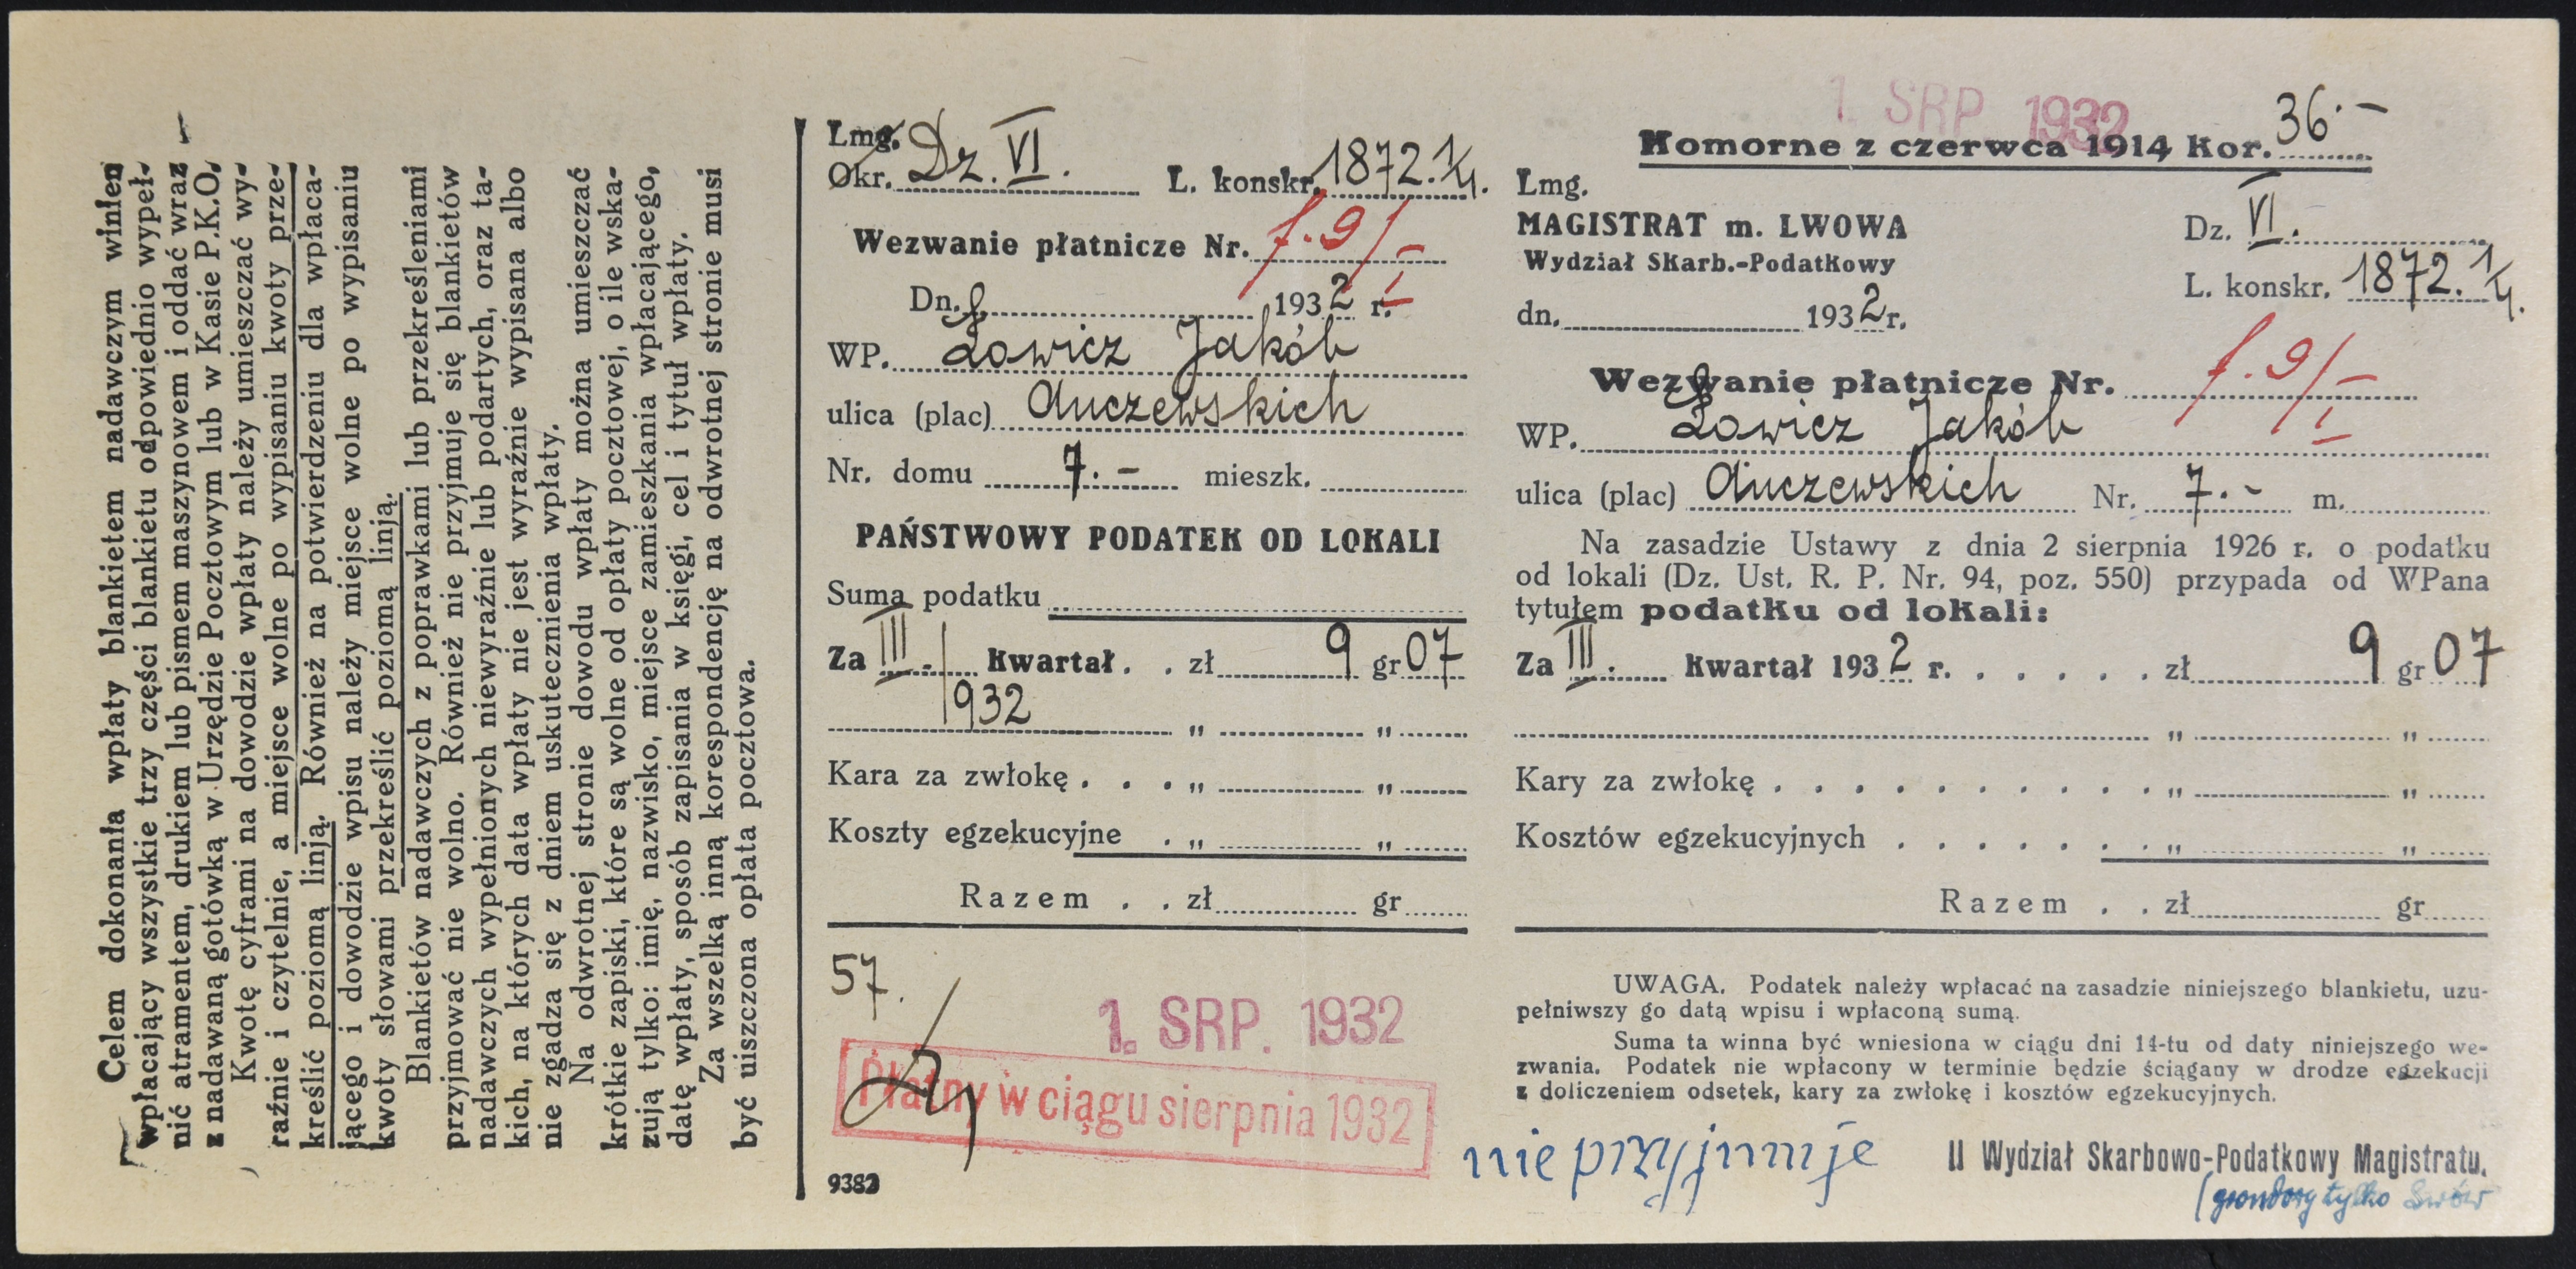 Celem dokonania wpłaty blankietem nadawczym winien
wpłacający wszystkie trzy części blankietu odpowiednio wypeł-
nić atramentem, drukiem lub pismem maszynowem i oddać wraz
z nadawaną gotówką w Urzędzie Pocztowym lub w Kasie P.K.O.
Kwotę cyframi na dowodzie wpłaty należy umieszczać wy-
raźnie i czytelnie, a miejsce wolne po wypisaniu kwoty prze-
kreślić poziomą linją. Również na potwierdzeniu dla wpłaca-
jącego i dowodzie wpisu należy miejsce wolne po wypisaniu
kwoty słowami przekreślić poziomą linją.
Blankietów nadawczych z poprawkami lub przekreśleniami
przyjmować nie wolno. Również nie przyjmuje się blankietów
nadawczych wypełnionych niewyraźnie lub podartych, oraz ta-
kich, na których data wpłaty nie jest wyraźnie wypisana albo
nie zgadza się z dniem uskutecznienia wpłaty.
Na odwrotnej stronie dowodu wpłaty można umieszczać
krótkie zapiski, które są wolne od opłaty pocztowej, o ile wska-
zują tylko: imię, nazwisko, miejsce zamieszkania wpłacającego,
datę wpłaty, sposób zapisania w księgi, cel i tytuł wpłaty.
Za wszelką inną korespondencję na odwrotnej stronie musi
być uiszczona opłata pocztowa.
Lmg.
Okr. Dz. VI. L. konskr. 1872.1/4.
Wezwanie płatnicze Nr. f.9/I
Dn. 1932 r.
WP. Łowicz Jakób
ulica (plac) Auczewskich
Nr. domu 7.- mieszk.
PAŃSTWOWY PODATEK OD LOKALI
Suma podatku
Za III. Kwartał . . zł 9 gr 07
1932 " "
Kara za zwłokę . . . " "
Koszty egzekucyjne . " "
Razem . . zł gr
57.
1. SRP. 1932
Płatny w ciągu sierpnia 1932
9382
1. SRP. 1932
Komorne z czerwca 1914 Kor. 36.-
Lmg.
MAGISTRAT m. LWOWA
Dz. VI.
Wydział Skarb.-Podatkowy
L. konskr. 1872.1/4.
dn. 1932 r.
Wezwanie płatnicze Nr. f.9/I
WP. Łowicz Jakób
ulica (plac) Auczewskich Nr. 7.- m.
Na zasadzie Ustawy z dnia 2 sierpnia 1926 r. o podatku
od lokali (Dz. Ust. R. P. Nr. 94, poz. 550) przypada od WPana
tytułem podatku od lokali:
Za III. Kwartał 1932 r. . . . . . . zł 9 gr 07
" "
Kary za zwłokę . . . . . . . . . . " "
Kosztów egzekucyjnych . . . . . . . " "
Razem . . zł gr
UWAGA. Podatek należy wpłacać na zasadzie niniejszego blankietu, uzu-
pełniwszy go datą wpisu i wpłaconą sumą.
Suma ta winna być wniesiona w ciągu dni 14-tu od daty niniejszego we-
zwania. Podatek nie wpłacony w terminie będzie ściągany w drodze egzekucji
z doliczeniem odsetek, kary za zwłokę i kosztów egzekucyjnych.
nie przyjmuje
II Wydział Skarbowo-Podatkowy Magistratu.
tylko Lwów